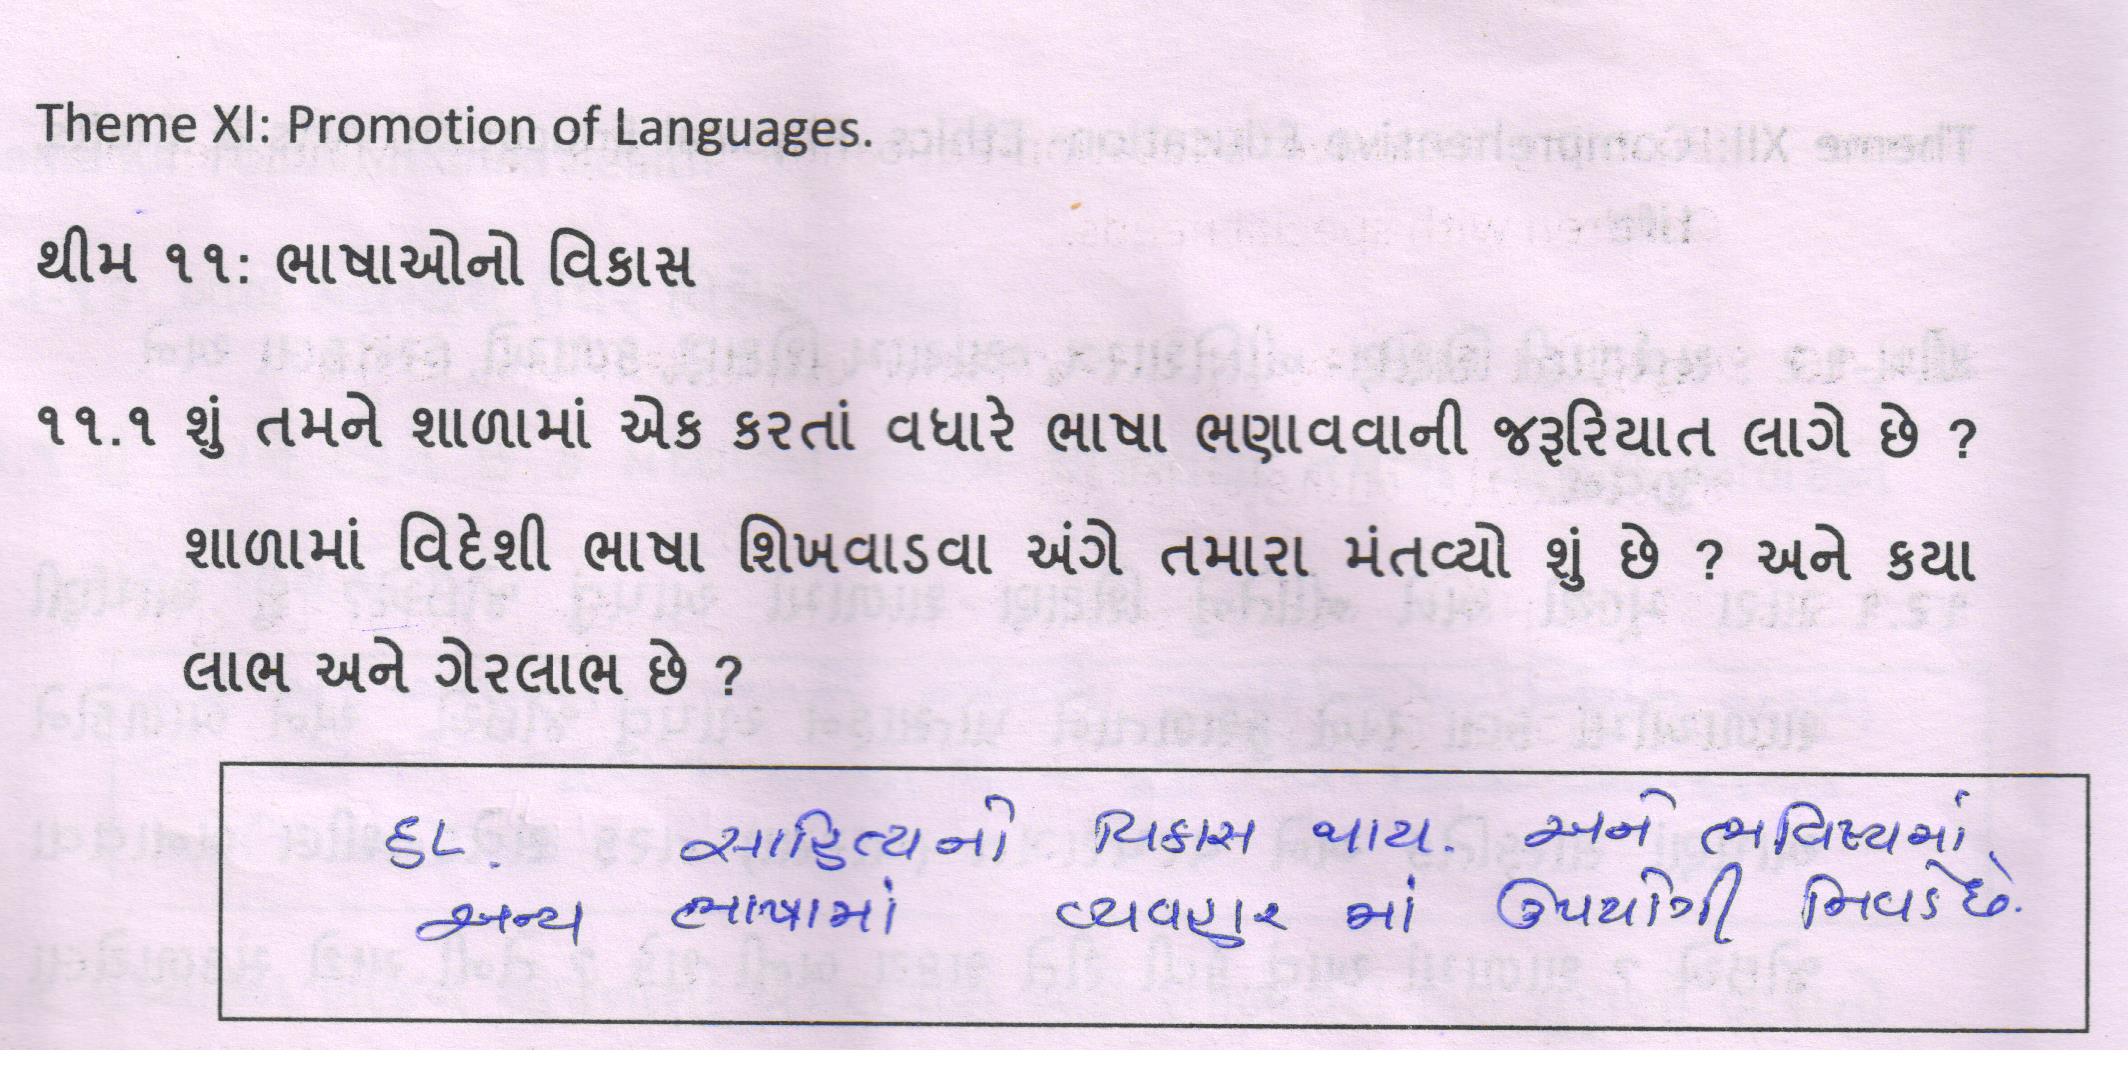 Theme XI: Promotion of Languages.
થીમ ૧૧: ભાષાઓનો વિકાસ
૧૧.૧ શું તમને શાળામાં એક કરતાં વધારે ભાષા ભણાવવાની જરૂરિયાત લાગે છે ?
શાળામાં વિદેશી ભાષા શિખવાડવા અંગે તમારા મંતવ્યો શું છે ? અને કયા
લાભ અને ગેરલાભ છે ?
સાહિત્યનો વિકાસ થાય. અને ભવિષ્યમાં
અન્ય ભાષામાં વ્યવહાર માં ઉપયોગી નિવડે છે.